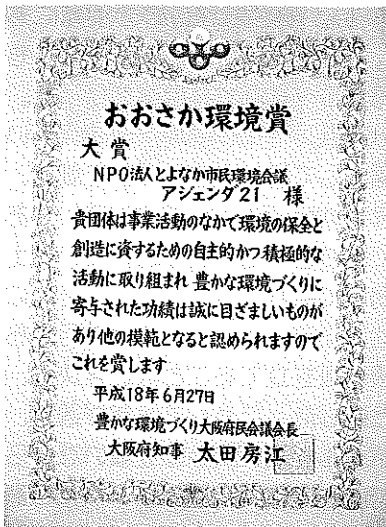 おおさか環境賞
大賞
NPO法人とよなか市民環境会議
アジェンダ21 様
貴団体は事業活動のなかで環境の保全と
創造に資するための自主的かつ積極的な
活動に取り組まれ 豊かな環境づくりに
寄与された功績は誠に目ざましいものが
あり他の模範となると認められますので
これを賞します
平成18年6月27日
豊かな環境づくり大阪府民会議会長
大阪府知事 太田房江